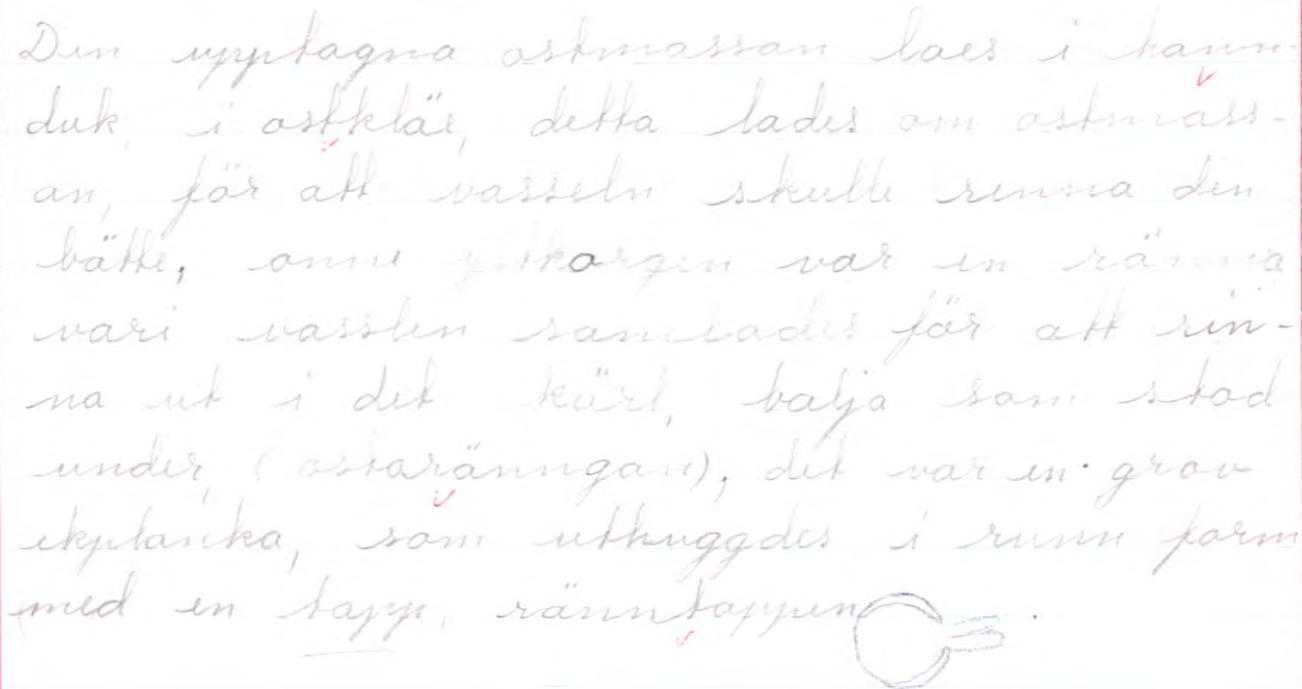 Den upptagna ostmassan laes i hann-
duk, i ostkläe, detta lades om ostmass-
an, för att vasseln skulle renna den
bätte, onne ostkorgen var en ränna
vari vasslen samlades för att rin-
na ut i det kärl, balja som stod
under, (ostaränngan), det var en grov
ekplanka, som uthuggdes i runn form
med en tapp, ränntappen .